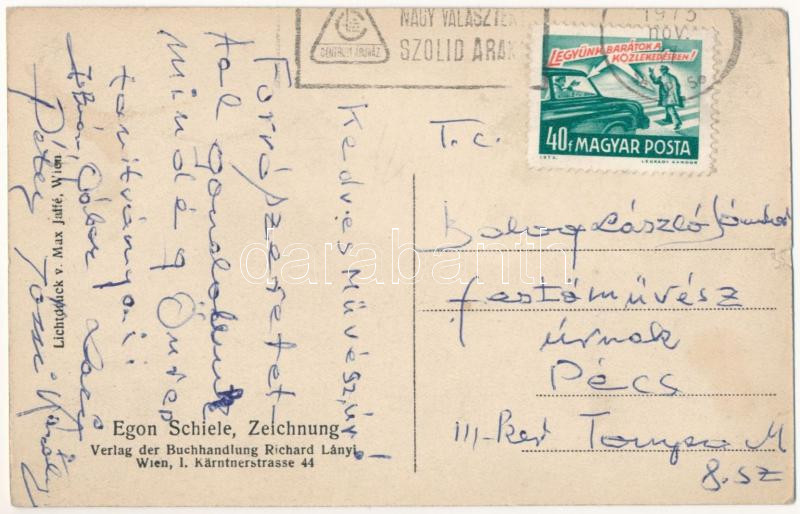 NAGY VÁLASZTÉK
SZOLID ÁRAK
CENTRUM ÁRUHÁZ
1973
NOV.
LEGYÜNK BARÁTOK A
KÖZLEKEDÉSBEN!
40f MAGYAR POSTA
1973.
LÉGRÁDY SÁNDOR
Kedves Művész úr!
Forró szeretet-
tel gondolunk
mindég Önre
tanítványai:
István, Gábor
Péter Károly
T. c.
László
festőművész
úrnak
Pécs
III-Ker
8. sz
Lichtdruck v. Max Jaffé, Wien
Egon Schiele, Zeichnung
Verlag der Buchhandlung Richard Lányi
Wien, I. Kärntnerstrasse 44
darabanth